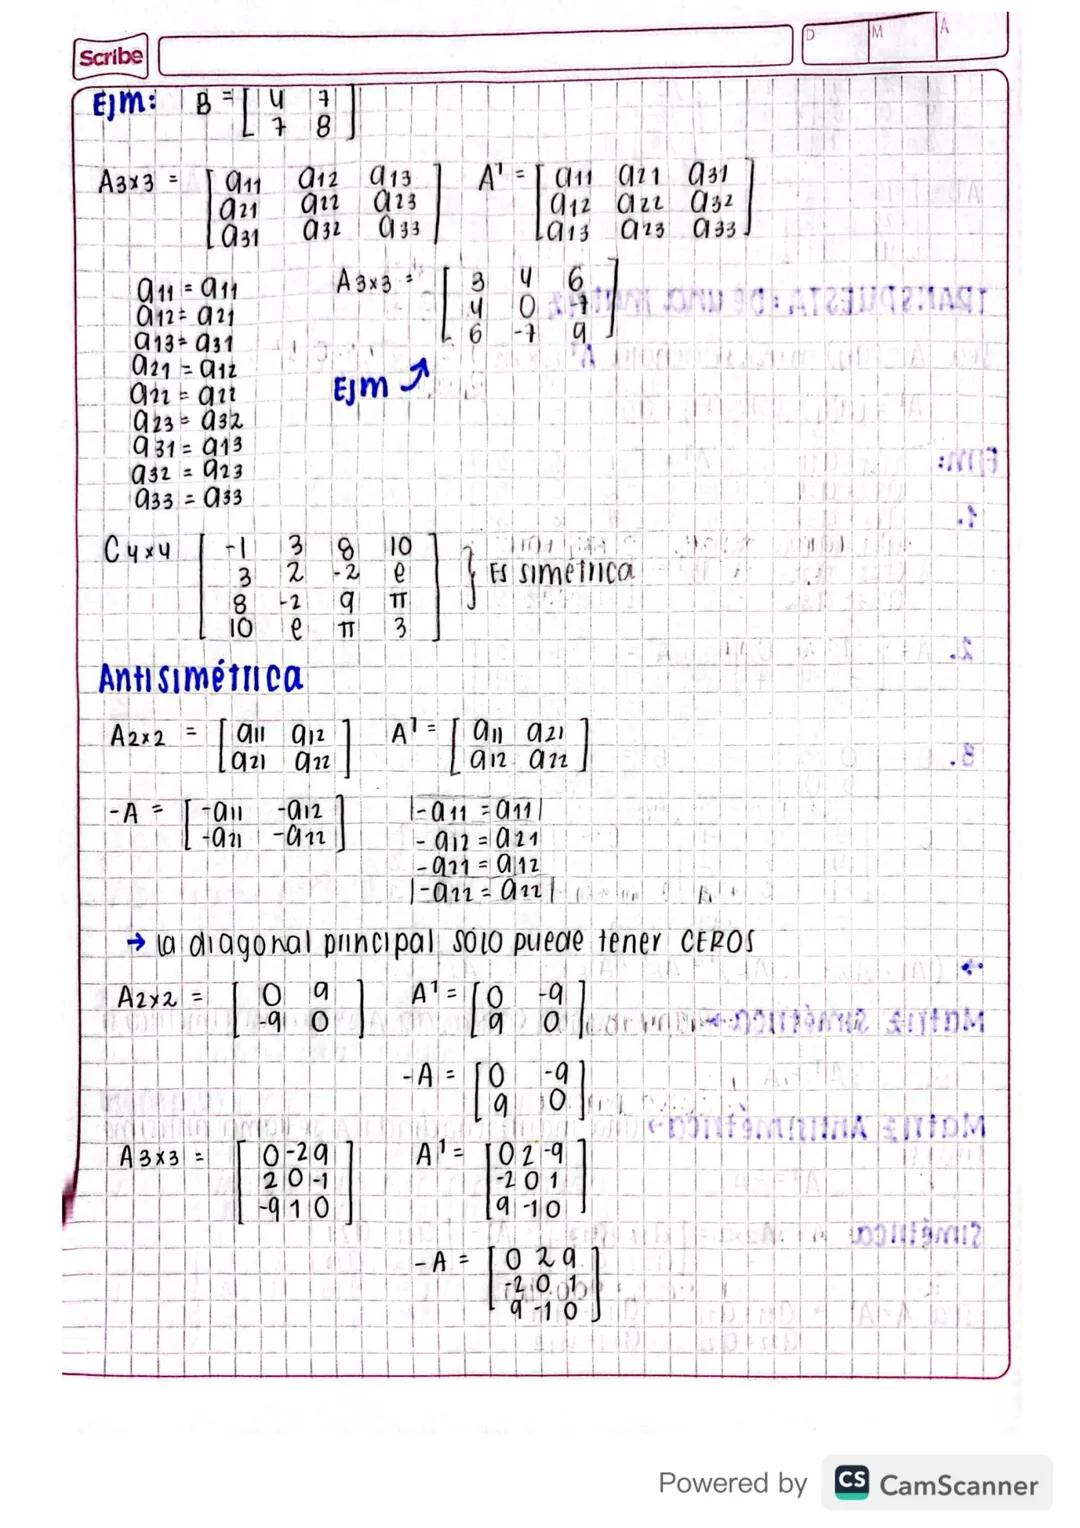 Scribe
D M A
Ejm: B = [ 4 7
7 8 ]
A3x3 = [ a11 a12 a13 A' = [ a11 a21 a31
a21 a22 a23 a12 a22 a32
a31 a32 a33 ] a13 a23 a33 ]
a11 = a11
a12 = a21
a13 = a31
a21 = a12
a22 = a22
a23 = a32
a31 = a13
a32 = a23
a33 = a33
A3x3 = [ 3 4 6
4 0 -7
6 -7 9 ]
Ejm
C4x4 [ -1 3 8 10
3 2 -2 e
8 -2 9 π
10 e π 3 ] } Es simétrica
Antisimétrica
A2x2 = [ a11 a12 A' = [ a11 a21
a21 a22 ] a12 a22 ]
-A = [ -a11 -a12
-a21 -a22 ]
|-a11 = a11|
-a12 = a21
-a21 = a12
|-a22 = a22|
→ la diagonal principal sólo puede tener CEROS
A2x2 = [ 0 9 A' = [ 0 -9
-9 0 ] 9 0 ]
-A = [ 0 -9
9 0 ]
A3x3 = [ 0 -2 9 A' = [ 0 2 -9
2 0 -1 -2 0 1
-9 1 0 ] 9 -1 0 ]
-A = [ 0 2 9
-2 0 1
9 -1 0 ]
Powered by CS CamScanner